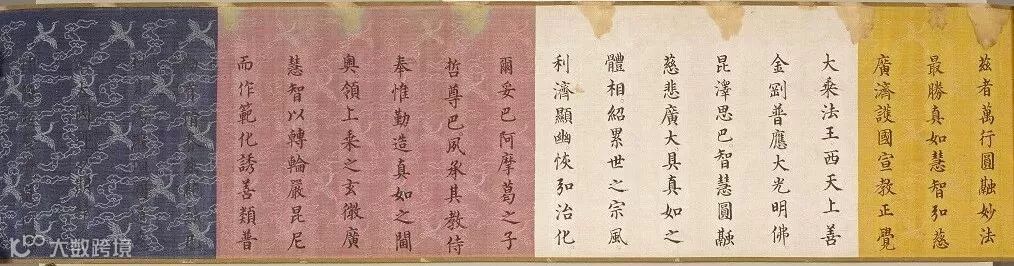 茲者萬行圓融妙法
最勝真如慧智弘慈
廣濟護國宣教正覺
大乘法王西天上善
金剛普應大光明佛
昆澤思巴智慧圓融
慈悲廣大具真如之
體相紹累世之宗風
利濟顯幽恢弘治化
爾妥巴阿摩葛之子
哲尊巴夙承其教侍
奉惟勤造真如之閫
奧領上乘之玄微廣
慧智以轉輪嚴昆尼
而作範化誘善類普
大数跨境